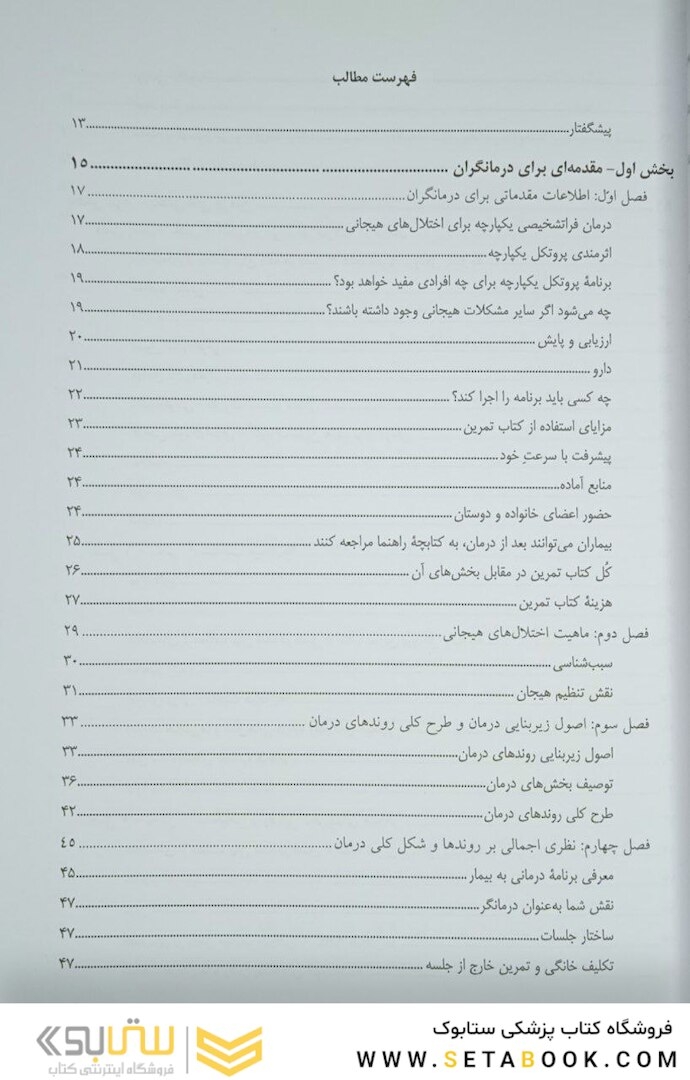 فهرست مطالب
پیشگفتار ۱۳
بخش اول- مقدمه‌ای برای درمانگران ۱۵
فصل اوّل: اطلاعات مقدماتی برای درمانگران ۱۷
درمان فراتشخیصی یکپارچه برای اختلال‌های هیجانی ۱۷
اثرمندی پروتکل یکپارچه ۱۸
برنامهٔ پروتکل یکپارچه برای چه افرادی مفید خواهد بود؟ ۱۹
چه می‌شود اگر سایر مشکلات هیجانی وجود داشته باشند؟ ۱۹
ارزیابی و پایش ۲۰
دارو ۲۱
چه کسی باید برنامه را اجرا کند؟ ۲۲
مزایای استفاده از کتاب تمرین ۲۳
پیشرفت با سرعتِ خود ۲۴
منابع آماده ۲۴
حضور اعضای خانواده و دوستان ۲۴
بیماران می‌توانند بعد از درمان، به کتابچهٔ راهنما مراجعه کنند ۲۵
کُل کتاب تمرین در مقابل بخش‌های آن ۲۶
هزینهٔ کتاب تمرین ۲۷
فصل دوم: ماهیت اختلال‌های هیجانی ۲۹
سبب‌شناسی ۳۰
نقش تنظیم هیجان ۳۱
فصل سوم: اصول زیربنایی درمان و طرح کلی روندهای درمان ۳۳
اصول زیربنایی روندهای درمان ۳۳
توصیف بخش‌های درمان ۳۶
طرح کلی روندهای درمان ۴۲
فصل چهارم: نظری اجمالی بر روندها و شکل کلی درمان ۴۵
معرفی برنامهٔ درمانی به بیمار ۴۵
نقش شما به‌عنوان درمانگر ۴۷
ساختار جلسات ۴۷
تکلیف خانگی و تمرین خارج از جلسه ۴۷
فروشگاه کتاب پزشکی ستابوک
WWW.SETABOOK.COM
ستابوک
فروشگاه اینترنتی کتاب